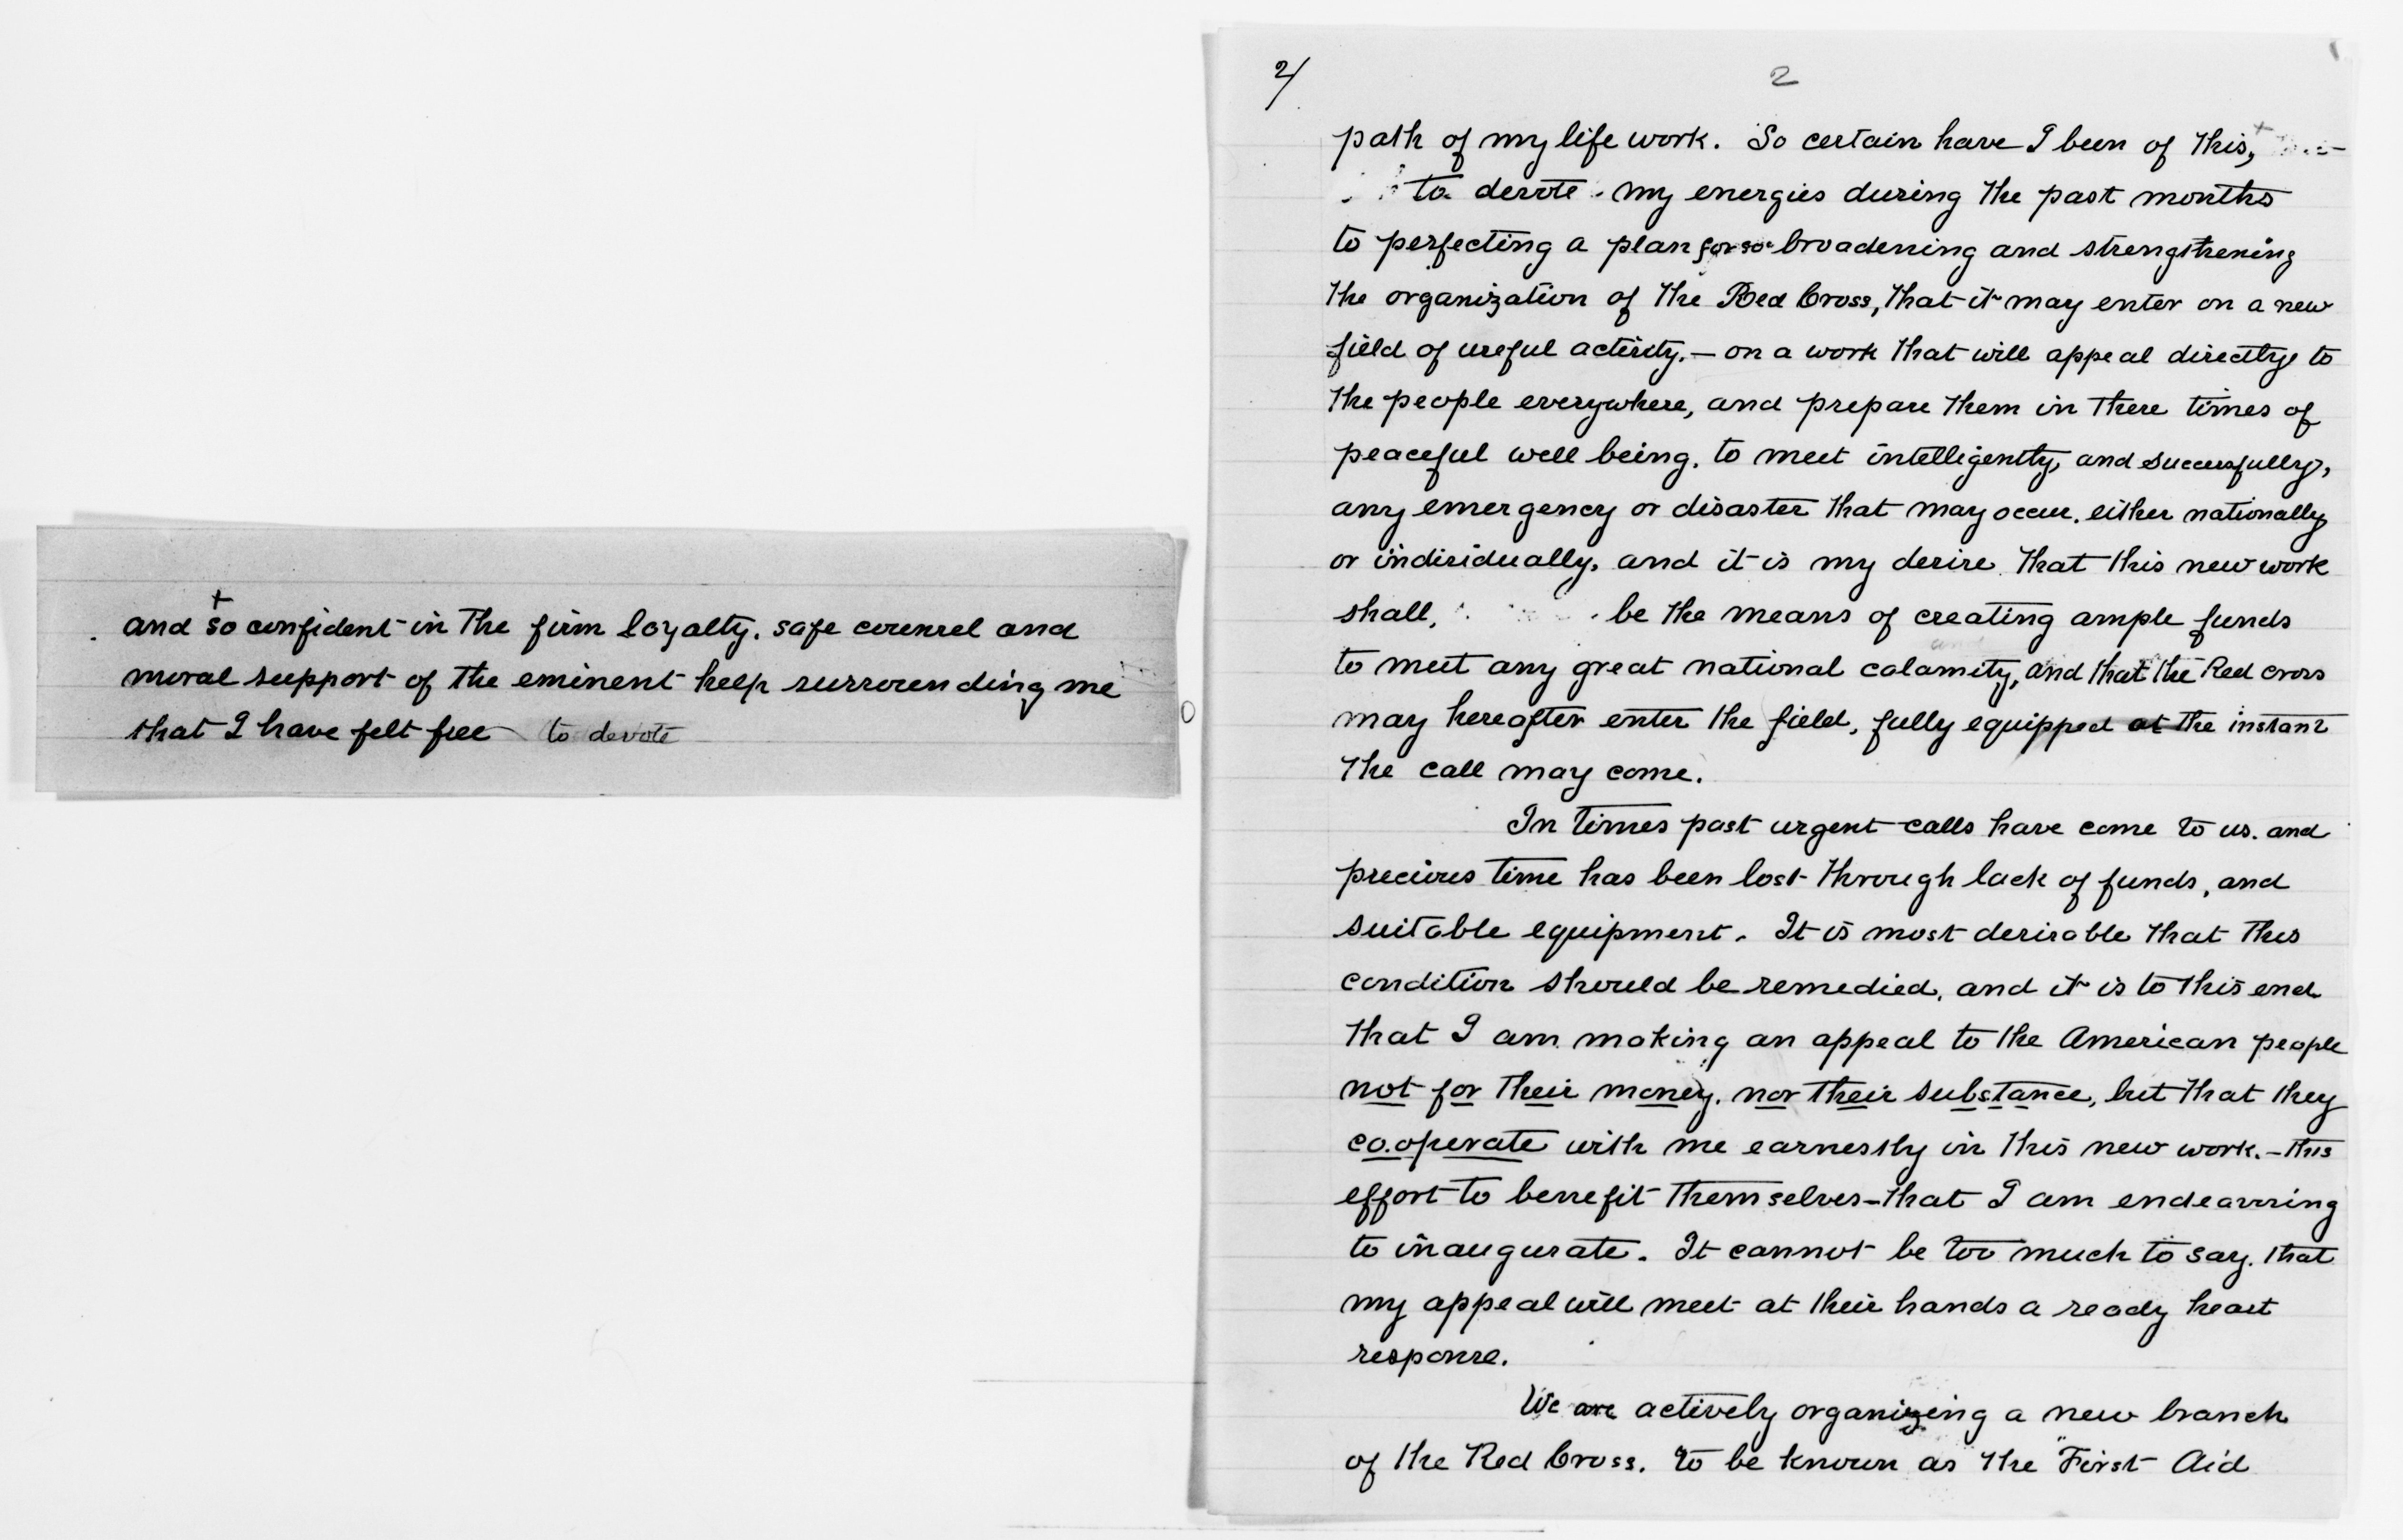 +
and so confident in the firm loyalty. safe counsel and
moral support of the eminent help surrounding me
that I have felt free to devote
2/
2
path of my life work. So certain have I been of this, +
to devote my energies during the past months
to perfecting a plan for so broadening and strengthening
the organization of the Red Cross, that it may enter on a new
field of useful activity. — on a work that will appeal directly to
the people everywhere, and prepare them in these times of
peaceful well being. to meet intelligently, and successfully,
any emergency or disaster that may occur. either nationally
or individually, and it is my desire that this new work
shall, be the means of creating ample funds
to meet any great national calamity, and that the Red Cross
may hereafter enter the field, fully equipped at the instant
the call may come.
In times past urgent calls have come to us. and
precious time has been lost through lack of funds, and
suitable equipment. It is most desirable that this
condition should be remedied, and it is to this end
that I am making an appeal to the American people
not for their money. nor their substance, but that they
co.operate with me earnestly in this new work. - this
effort to benefit themselves - that I am endeavoring
to inaugurate. It cannot be too much to say. that
my appeal will meet at their hands a ready heart
response.
We are actively organizing a new branch
of the Red Cross. to be known as the "First Aid